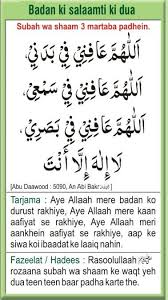 Badan ki salaamti ki dua
Subah wa shaam 3 martaba padhein.
اَللّٰهُمَّ عَافِنِيْ فِيْ بَدَنِيْ
اَللّٰهُمَّ عَافِنِيْ فِيْ سَمْعِيْ
اَللّٰهُمَّ عَافِنِيْ فِيْ بَصَرِيْ
لَا إِلٰهَ إِلَّا أَنْتَ
[Abu Daawood : 5090, An Abi Bakr]
Tarjama : Aye Allaah mere badan ko
durust rakhiye, Aye Allaah mere kaan
aafiyat se rakhiye, Aye Allaah meri
aankhein aafiyat se rakhiye, aap ke
siwa koi ibaadat ke laaiq nahin.
Fazeelat / Hadees : Rasoolullaah ﷺ
rozaana subah wa shaam ke waqt yeh
dua teen teen baar padha karte the.